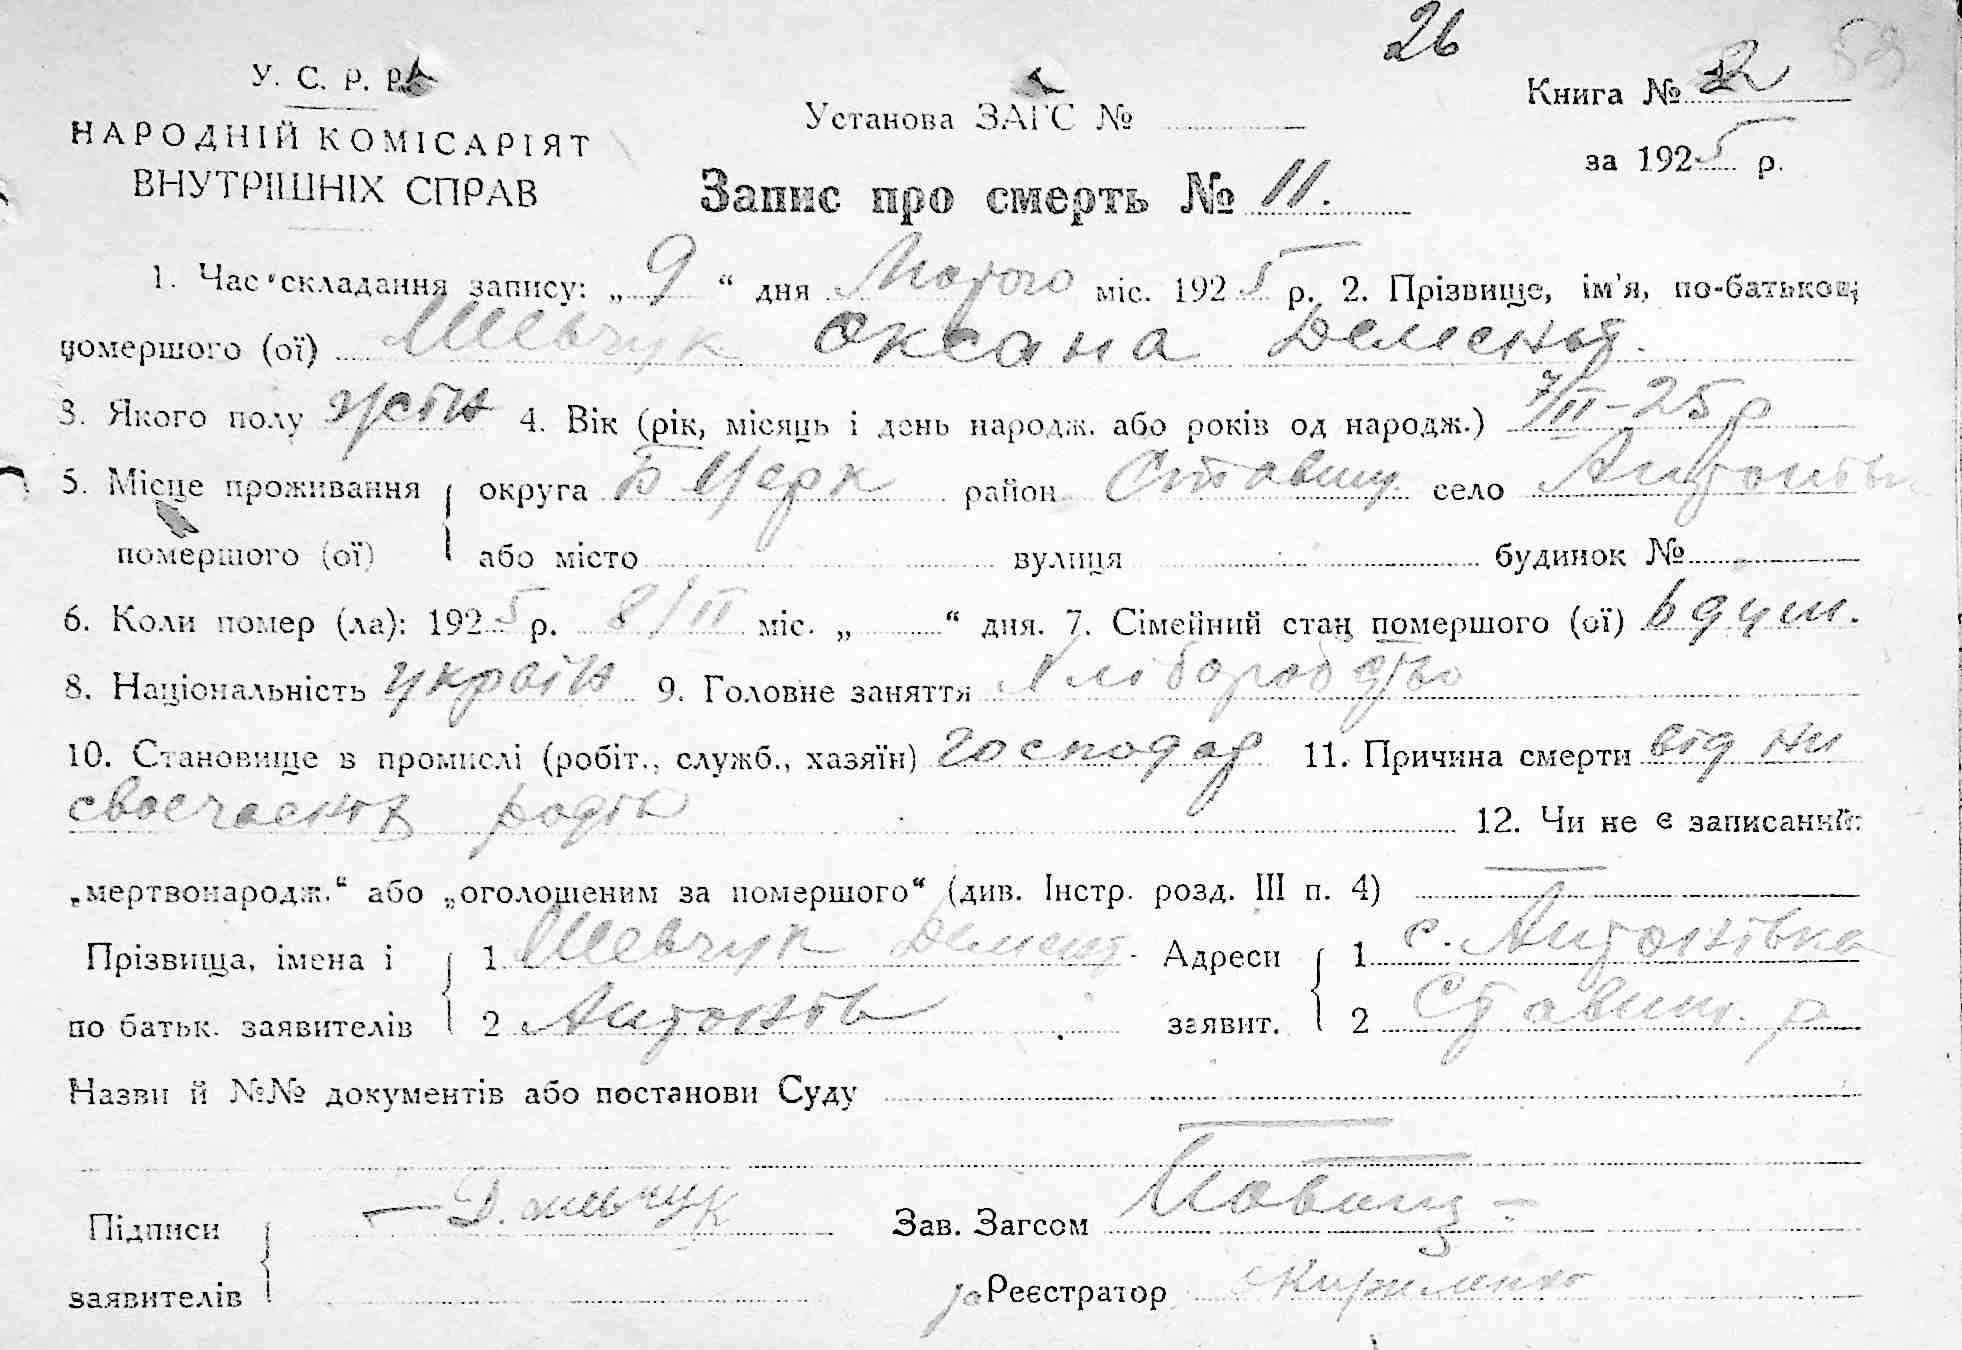 26
59
У. С. Р. Р.
НАРОДНІЙ КОМІСАРІЯТ
ВНУТРІШНІХ СПРАВ
Установа ЗАГС №
Книга № 2
за 1925 р.
Запис про смерть № 11.
1. Час складання запису: „ 9 “ дня Лютого міс. 1925 р. 2. Прізвище, ім'я, по-батькові
помершого (ої) Шевчук Оксана Демент.
3. Якого полу жін 4. Вік (рік, місяць і день народж. або років од народж.) 7/II-25 р
5. Місце проживання округа Б Церк район Ставищ. село Антонівк
помершого (ої) або місто вулиця будинок №
6. Коли помер (ла): 1925 р. 8/II міс. „ “ дня. 7. Сімейний стан помершого (ої)
8. Національність україн 9. Головне заняття Хліборобство
10. Становище в промислі (робіт., служб., хазяїн) господар 11. Причина смерти від ни
своечасних родів
12. Чи не є записаний:
„мертвонародж.“ або „оголошеним за помершого“ (див. Інстр. розд. III п. 4) —
Прізвища, імена і 1 Шевчук Демент. Адреси 1 с. Антонівка
по батьк. заявителів 2 Антонів заявит. 2 Ставищ. р
Назви й №№ документів або постанови Суду
Підписи — Д. Шевчук Зав. Загсом
заявителів Реєстратор Кириленко